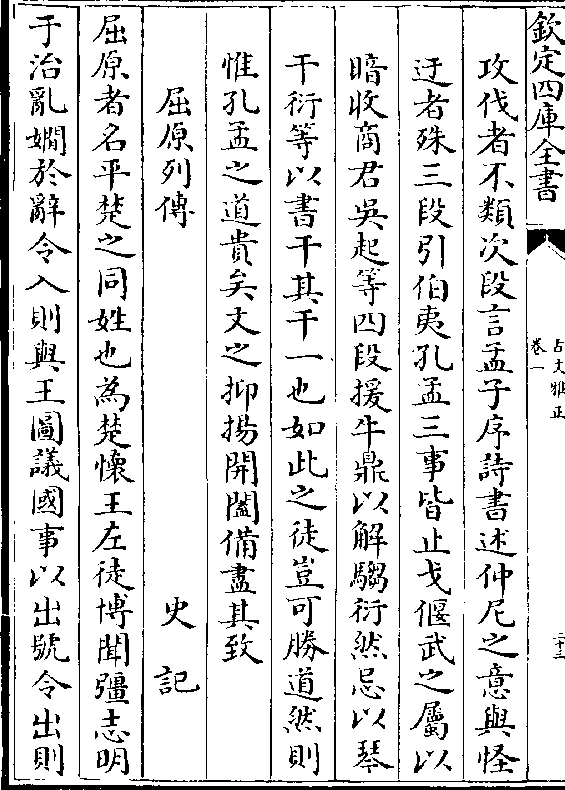 欽定四庫全書
古文雅正
卷一
二十三
攻伐者不類次段言孟子序詩書述仲尼之意與怪
迂者殊三段引伯夷孔孟三事皆止戈偃武之屬以
暗收商君吳起等四段援牛鼎以解騶衍然忌以琴
干衍等以書干其干一也如此之徒豈可勝道然則
惟孔孟之道貴矣文之抑揚開闔備盡其致
屈原列傳
史記
屈原者名平楚之同姓也為楚懷王左徒博聞彊志明
于治亂嫺於辭令入則與王圖議國事以出號令出則